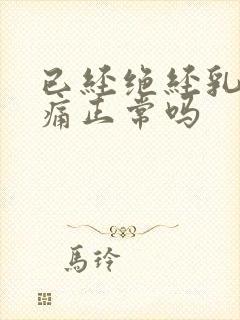 已经绝经乳
痛正常吗
馬玲